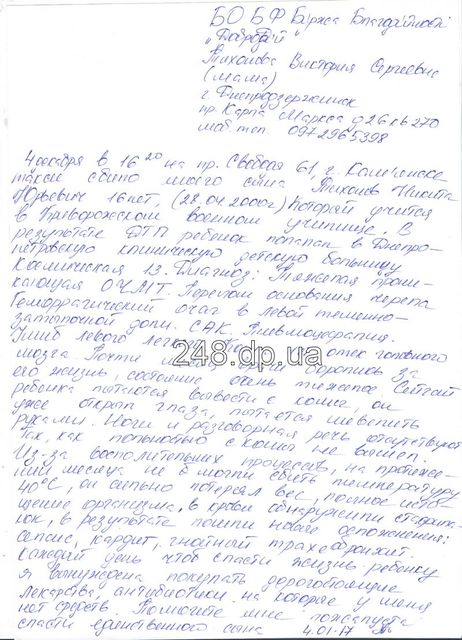 БО БФ Биржа Благодійності
"Добродій"
Тихонова Виктория Сергеевна
(мама)
г Днепродзержинск
пр. Карла Маркса д 26 кв 270
моб тел. 0972965398
4 декабря в 16 20 на пр. Свободы 61, г. Каменское
такси сбило моего сына Тихонов Никита
Юрьевич 16 лет, (28.04.2000г) Который учится
в Криворожском военном училище. В
результате ДТП ребенок попал в Днепро-
петровскую клиническую детскую больницу
Космическая 13. Диагноз: Тяжелая прони-
кающая ОЧМТ. Перелом основания черепа
Геморрагический очаг в левой теменно-
затылочной доли. САК. Пневмоцефалия.
Ушиб левого отек головного
мозга. Почти за
его жизнь, состояние очень тяжелое Сейчас
ребенка пытаются вывести с комы, он
уже открыл глаза, пытается шевелить
руками. Ноги и разговорная речь отсутствуют
Так, как полностью с комы не вышел.
Из-за воспалительных процессов, на протяже-
нии месяца не могли сбить температуру
40°C, он сильно потерял вес, полное исто-
щение организма, в крови обнаружили стафило-
кок, в результате пошли новые осложнения:
сепсис, кардит, гнойный трахеобронхит.
Каждый день чтоб спасти жизнь ребенку
я вынуждена покупать дорогостоящие
лекарства, антибиотики на которые у меня
нет средств. Помогите мне пожалуйста
спасти единственного сына 4.01.17
248.dp.ua